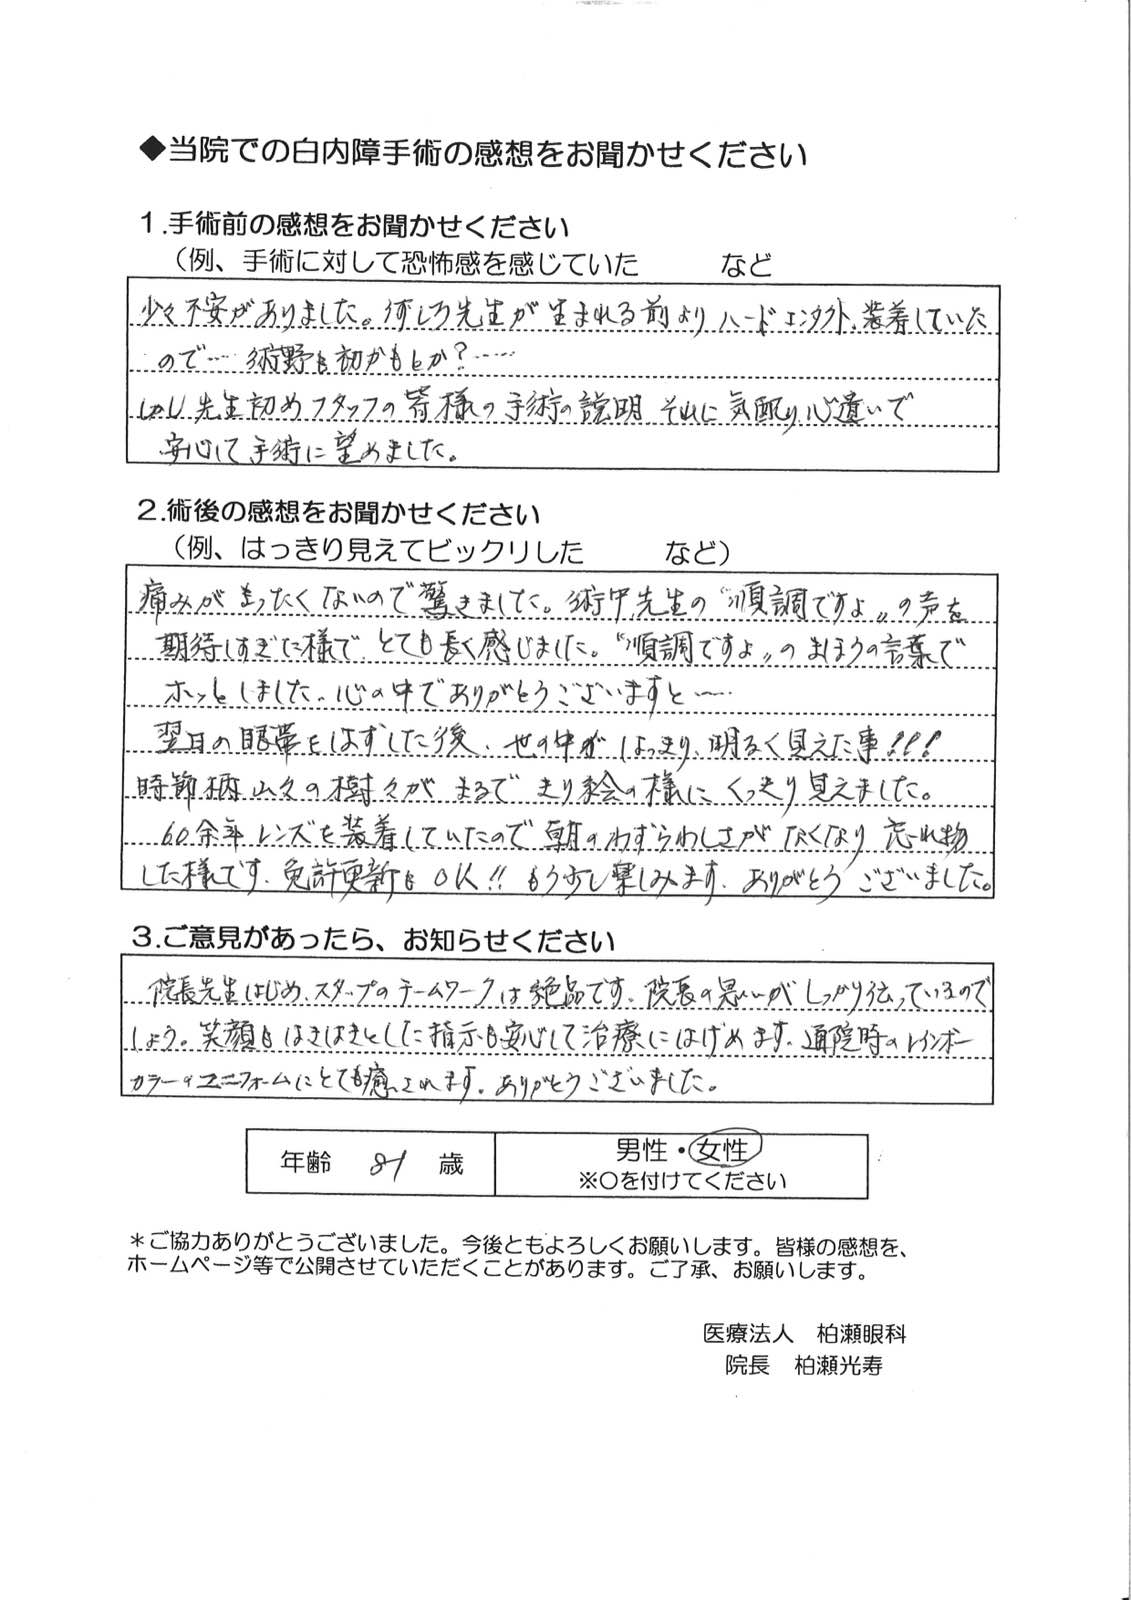 ◆当院での白内障手術の感想をお聞かせください
1.手術前の感想をお聞かせください
（例、手術に対して恐怖感を感じていた　　　など
少々不安がありました。何しろ先生が生まれる前よりハードコンタクト、装着していた
ので…… 術野も初かもとか？……
しかし先生初めスタッフの皆様の手術の説明、それに気配り心遣いで
安心して手術に望めました。
2.術後の感想をお聞かせください
（例、はっきり見えてビックリした　　　など）
痛みがまったくないので驚きました。術中、先生の〝順調ですよ〟の声を
期待しすぎた様でとても長く感じました。〝順調ですよ〟のまほうの言葉で
ホッとしました、心の中でありがとうございますと……
翌日の眼帯をはずした後、世の中がはっきり、明るく見えた事！！！
時節柄山々の樹々がまるできり絵の様にくっきり見えました。
60余年レンズを装着していたので朝のわずらわしさがなくなり忘れ物
した様です、免許更新もOK!! もう少し楽しみます、ありがとうございました。
3.ご意見があったら、お知らせください
院長先生はじめ、スタッフのチームワークは絶品です、院長の思いがしっかり伝っているので
しょう。笑顔もはきはきとした指示も安心して治療にはげめます、通院時のレインボー
カラーのユニフォームにとても癒されます、ありがとうございました。
年齢　81　歳
男性・女性
※○を付けてください
＊ご協力ありがとうございました。今後ともよろしくお願いします。皆様の感想を、
ホームページ等で公開させていただくことがあります。ご了承、お願いします。
医療法人　柏瀬眼科
院長　柏瀬光寿